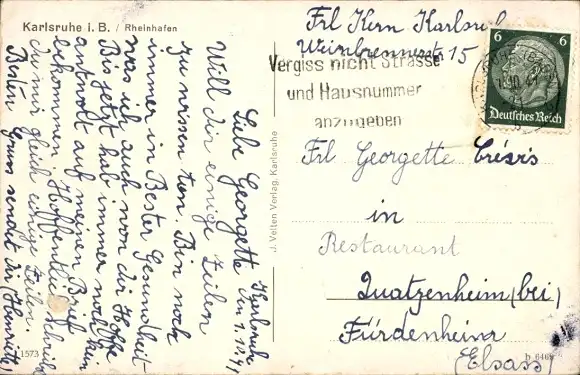 Karlsruhe i. B. / Rheinhafen
Karlsruhe
den 1.10.41
Liebe Georgette
Will dir einige Zeilen
zu wissen tun. Bin noch
immer in Bester Gesundheit
was ich auch von dir Hoffe
Bis jetzt hab immer noch kein
antwort auf meinen Brief
bekommen Hoffentlich Schreibs
du mir gleich einige Zeilen.
Besten Gruss sendt dir (Henriette)
1573
J. Velten Verlag, Karlsruhe
Frl Kern Karlsruh
Weinbrennerstr 15
Vergiss nicht Strasse
und Hausnummer
anzugeben
6 6
Deutsches Reich
Frl Georgette Crésis
in
Restaurant
Quatzenheim (bei)
Fürdenheim
(Elsass)